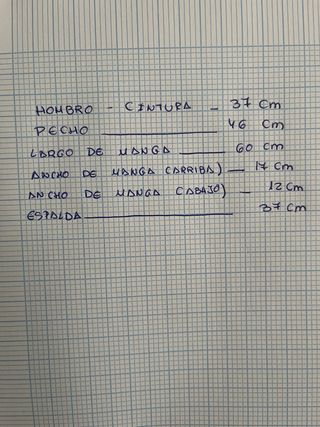 HOMBRO - CINTURA - 37 cm
PECHO ———— 46 cm
LARGO DE MANGA ——— 60 cm
ANCHO DE MANGA (ARRIBA) — 17 cm
ANCHO DE MANGA (ABAJO) - 12 cm
ESPALDA ———— 37 cm